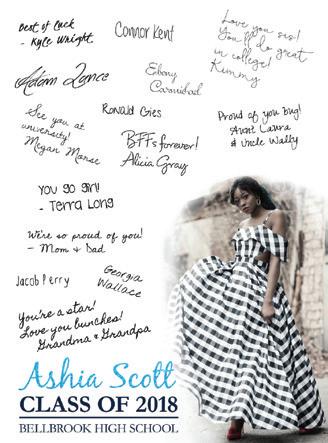 Best of luck
- Kyle Wright
Connor Kent
Love you sis!
You'll do great
in college!
Kimmy
Adam Lance
Ebony
Carmichael
See you at
university!
Megan Morse
Ronald Gies
BFFs forever!
Alicia Gray
Proud of you bug!
Aunt Laura
& Uncle Wally
You go girl!
- Terra Long
We're so proud of you!
- Mom & Dad
Jacob Perry
Georgia
Wallace
You're a star!
Love you bunches!
Grandma & Grandpa
Ashia Scott
CLASS OF 2018
BELLBROOK HIGH SCHOOL